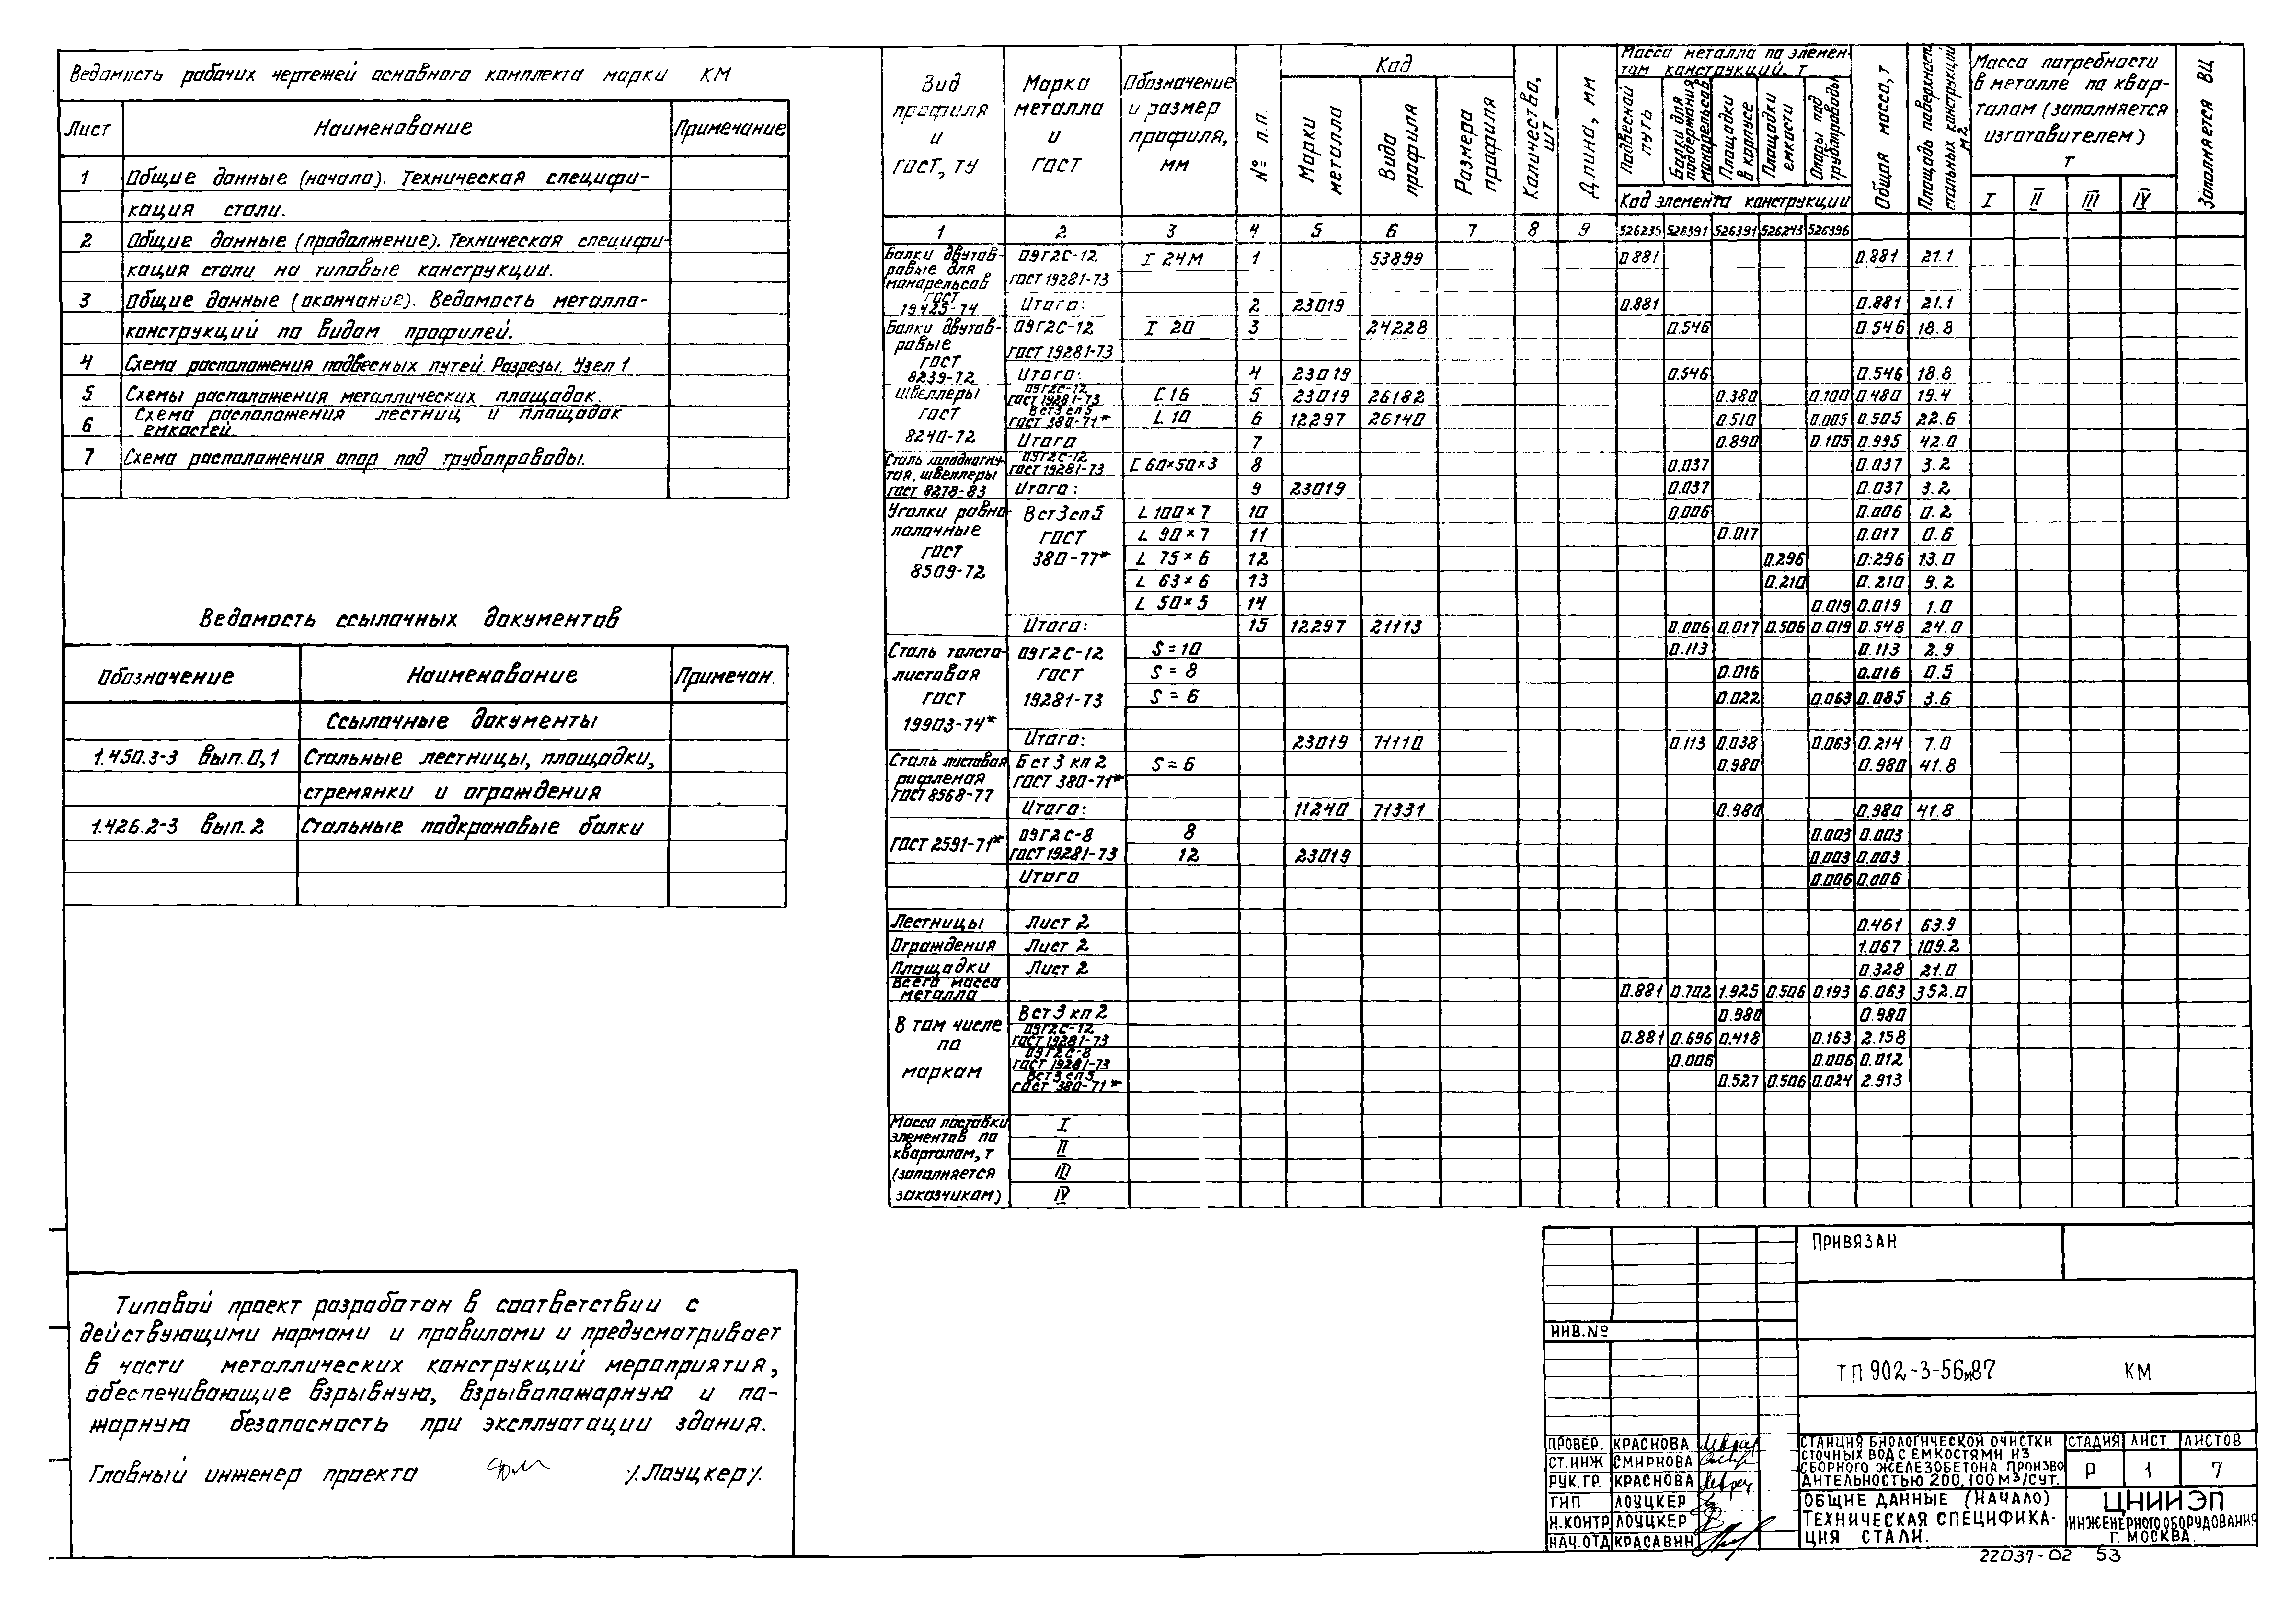 Ведомость рабочих чертежей основного комплекта марки КМ
Лист Наименование Примечание
1 Общие данные (начало). Техническая специфи-
кация стали.
2 Общие данные (продолжение). Техническая специфи-
кация стали на типовые конструкции.
3 Общие данные (окончание). Ведомость металло-
конструкций по видам профилей.
4 Схема расположения подвесных путей. Разрезы. Узел 1
5 Схемы расположения металлических площадок.
6 Схема расположения лестниц и площадок
емкостей.
7 Схема расположения опор под трубопроводы.
Ведомость ссылочных документов
Обозначение Наименование Примечан.
Ссылочные документы
1.450.3-3 Вып.0,1 Стальные лестницы, площадки,
стремянки и ограждения
1.426.2-3 Вып.2 Стальные подкрановые балки
Типовой проект разработан в соответствии с
действующими нормами и правилами и предусматривает
в части металлических конструкций мероприятия,
обеспечивающие взрывную, взрывопожарную и по-
жарную безопасность при эксплуатации здания.
Главный инженер проекта /.Лоуцкер/.
Вид профиля и ГОСТ, ТУ
Марка металла и ГОСТ
Обозначение и размер профиля, мм
№ п.п.
Код
Марки металла
Вида профиля
Размера профиля
Количество, шт
Длина, мм
Масса металла по элемен-
там конструкций, т
Подвесной путь
Балки для поддержания монорельсов
Площадки в корпусе
Площадки емкости
Опоры под трубопроводы
Код элемента конструкции
Общая масса, т
Площадь поверхности стальных конструкций м2
Масса потребности
в металле по квар-
талам (заполняется
изготовителем)
т
I II III IV
Заполняется ВЦ
1 2 3 4 5 6 7 8 9 526235 526391 526391 526243 526396
Балки двутав-
ровые для
монорельсов
ГОСТ
19425-74
09Г2С-12 I 24М 1 53899 0.881 0.881 21.1
ГОСТ 19281-73
Итого: 2 23019 0.881 0.881 21.1
Балки двутав-
ровые
ГОСТ
8239-72
09Г2С-12 I 20 3 24228 0.546 0.546 18.8
ГОСТ 19281-73
Итого: 4 23019 0.546 0.546 18.8
Швеллеры
ГОСТ
8240-72
09Г2С-12
ГОСТ 19281-73 С16 5 23019 26182 0.380 0.100 0.480 19.4
Вст3сп5
ГОСТ 380-71* L 10 6 12297 26140 0.510 0.005 0.505 22.6
Итого 7 0.890 0.105 0.995 42.0
Сталь холодногну-
тая, швеллеры
ГОСТ 8278-83
09Г2С-12
ГОСТ 19281-73 С 60×50×3 8 0.037 0.037 3.2
Итого: 9 23019 0.037 0.037 3.2
Уголки равно-
полочные
ГОСТ
8509-72
Вст3сп5
ГОСТ
380-77*
L 100×7 10 0.006 0.006 0.2
L 90×7 11 0.017 0.017 0.6
L 75×6 12 0.296 0.296 13.0
L 63×6 13 0.210 0.210 9.2
L 50×5 14 0.019 0.019 1.0
Итого: 15 12297 21113 0.006 0.017 0.506 0.019 0.548 24.0
Сталь толсто-
листовая
ГОСТ
19903-74*
09Г2С-12
ГОСТ
19281-73
S=10 0.113 0.113 2.9
S=8 0.016 0.016 0.5
S=6 0.022 0.063 0.085 3.6
Итого: 23019 71110 0.113 0.038 0.063 0.214 7.0
Сталь листовая
рифленая
ГОСТ 8568-77
Бст3кп2 S=6 0.980 0.980 41.8
ГОСТ 380-71*
Итого: 11240 71331 0.980 0.980 41.8
ГОСТ 2591-71*
09Г2С-8 8 0.003 0.003
ГОСТ 19281-73 12 23019 0.003 0.003
Итого 0.006 0.006
Лестницы Лист 2 0.461 63.9
Ограждения Лист 2 1.067 109.2
Площадки Лист 2 0.328 21.0
Всего масса
металла 0.881 0.702 1.925 0.506 0.193 6.063 352.0
В том числе
по
маркам
Вст3кп2 0.980 0.980
09Г2С-12
ГОСТ 19281-73 0.881 0.696 0.418 0.163 2.158
09Г2С-8
ГОСТ 19281-73 0.006 0.006 0.012
Вст3сп5
ГОСТ 380-71* 0.527 0.506 0.024 2.913
Масса поставки
элементов по
кварталам, т
(заполняется
заказчиком)
I
II
III
IV
Привязан
ИНВ.№
ТП 902-3-56м87 КМ
ПРОВЕР. КРАСНОВА
СТ.ИНЖ СМИРНОВА
РУК.ГР. КРАСНОВА
ГИП ЛОУЦКЕР
Н.КОНТР. ЛОУЦКЕР
НАЧ.ОТД КРАСАВИН
СТАНЦИЯ БИОЛОГИЧЕСКОЙ ОЧИСТКИ
СТОЧНЫХ ВОД С ЕМКОСТЯМИ ИЗ
СБОРНОГО ЖЕЛЕЗОБЕТОНА ПРОИЗВО
ДИТЕЛЬНОСТЬЮ 200, 100 М3/СУТ.
СТАДИЯ ЛИСТ ЛИСТОВ
Р 1 7
ОБЩИЕ ДАННЫЕ (НАЧАЛО)
ТЕХНИЧЕСКАЯ СПЕЦИФИКА-
ЦИЯ СТАЛИ.
ЦНИИЭП
ИНЖЕНЕРНОГО ОБОРУДОВАНИЯ
Г. МОСКВА.
22037-02 53